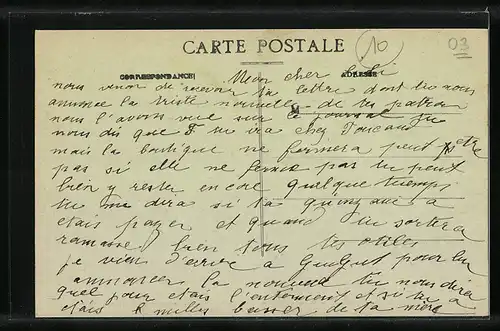 CARTE POSTALE
10
03
CORRESPONDANCE
ADRESSE
Mon cher
nous venon de recevoir ta lettre dont tu nous
annonce la triste nouvelle de ton patron
nous l'avons vue sur le journal tu
nous dis que ira chez
mais la boutique ne fermera peut etre
pas si elle ne ferme pas tu peut
bien y rester encore quelque temps
tu me dira si ta quinzaine a
etais payer et quand tu sortera
ramasse bien tous tes otiles
je vien d'ecrire a pour lui
annoncer la nouvelle tu nous dira
quel jour etais l'enterment et si tu a
etais milles baiser de ta mere